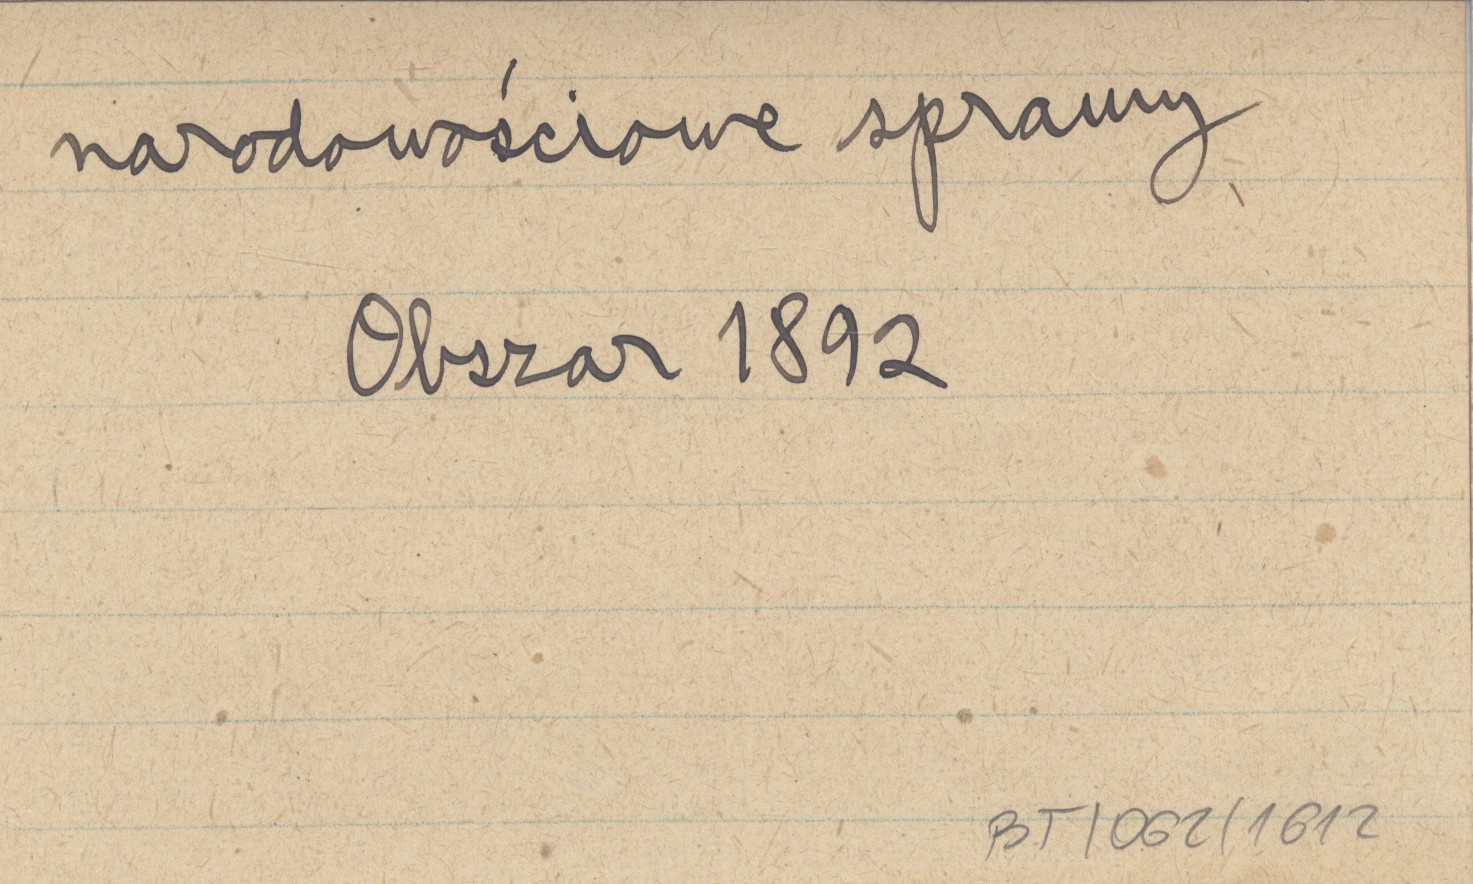 narodowościowe sprawy
Obszar 1892
BT/062/1612